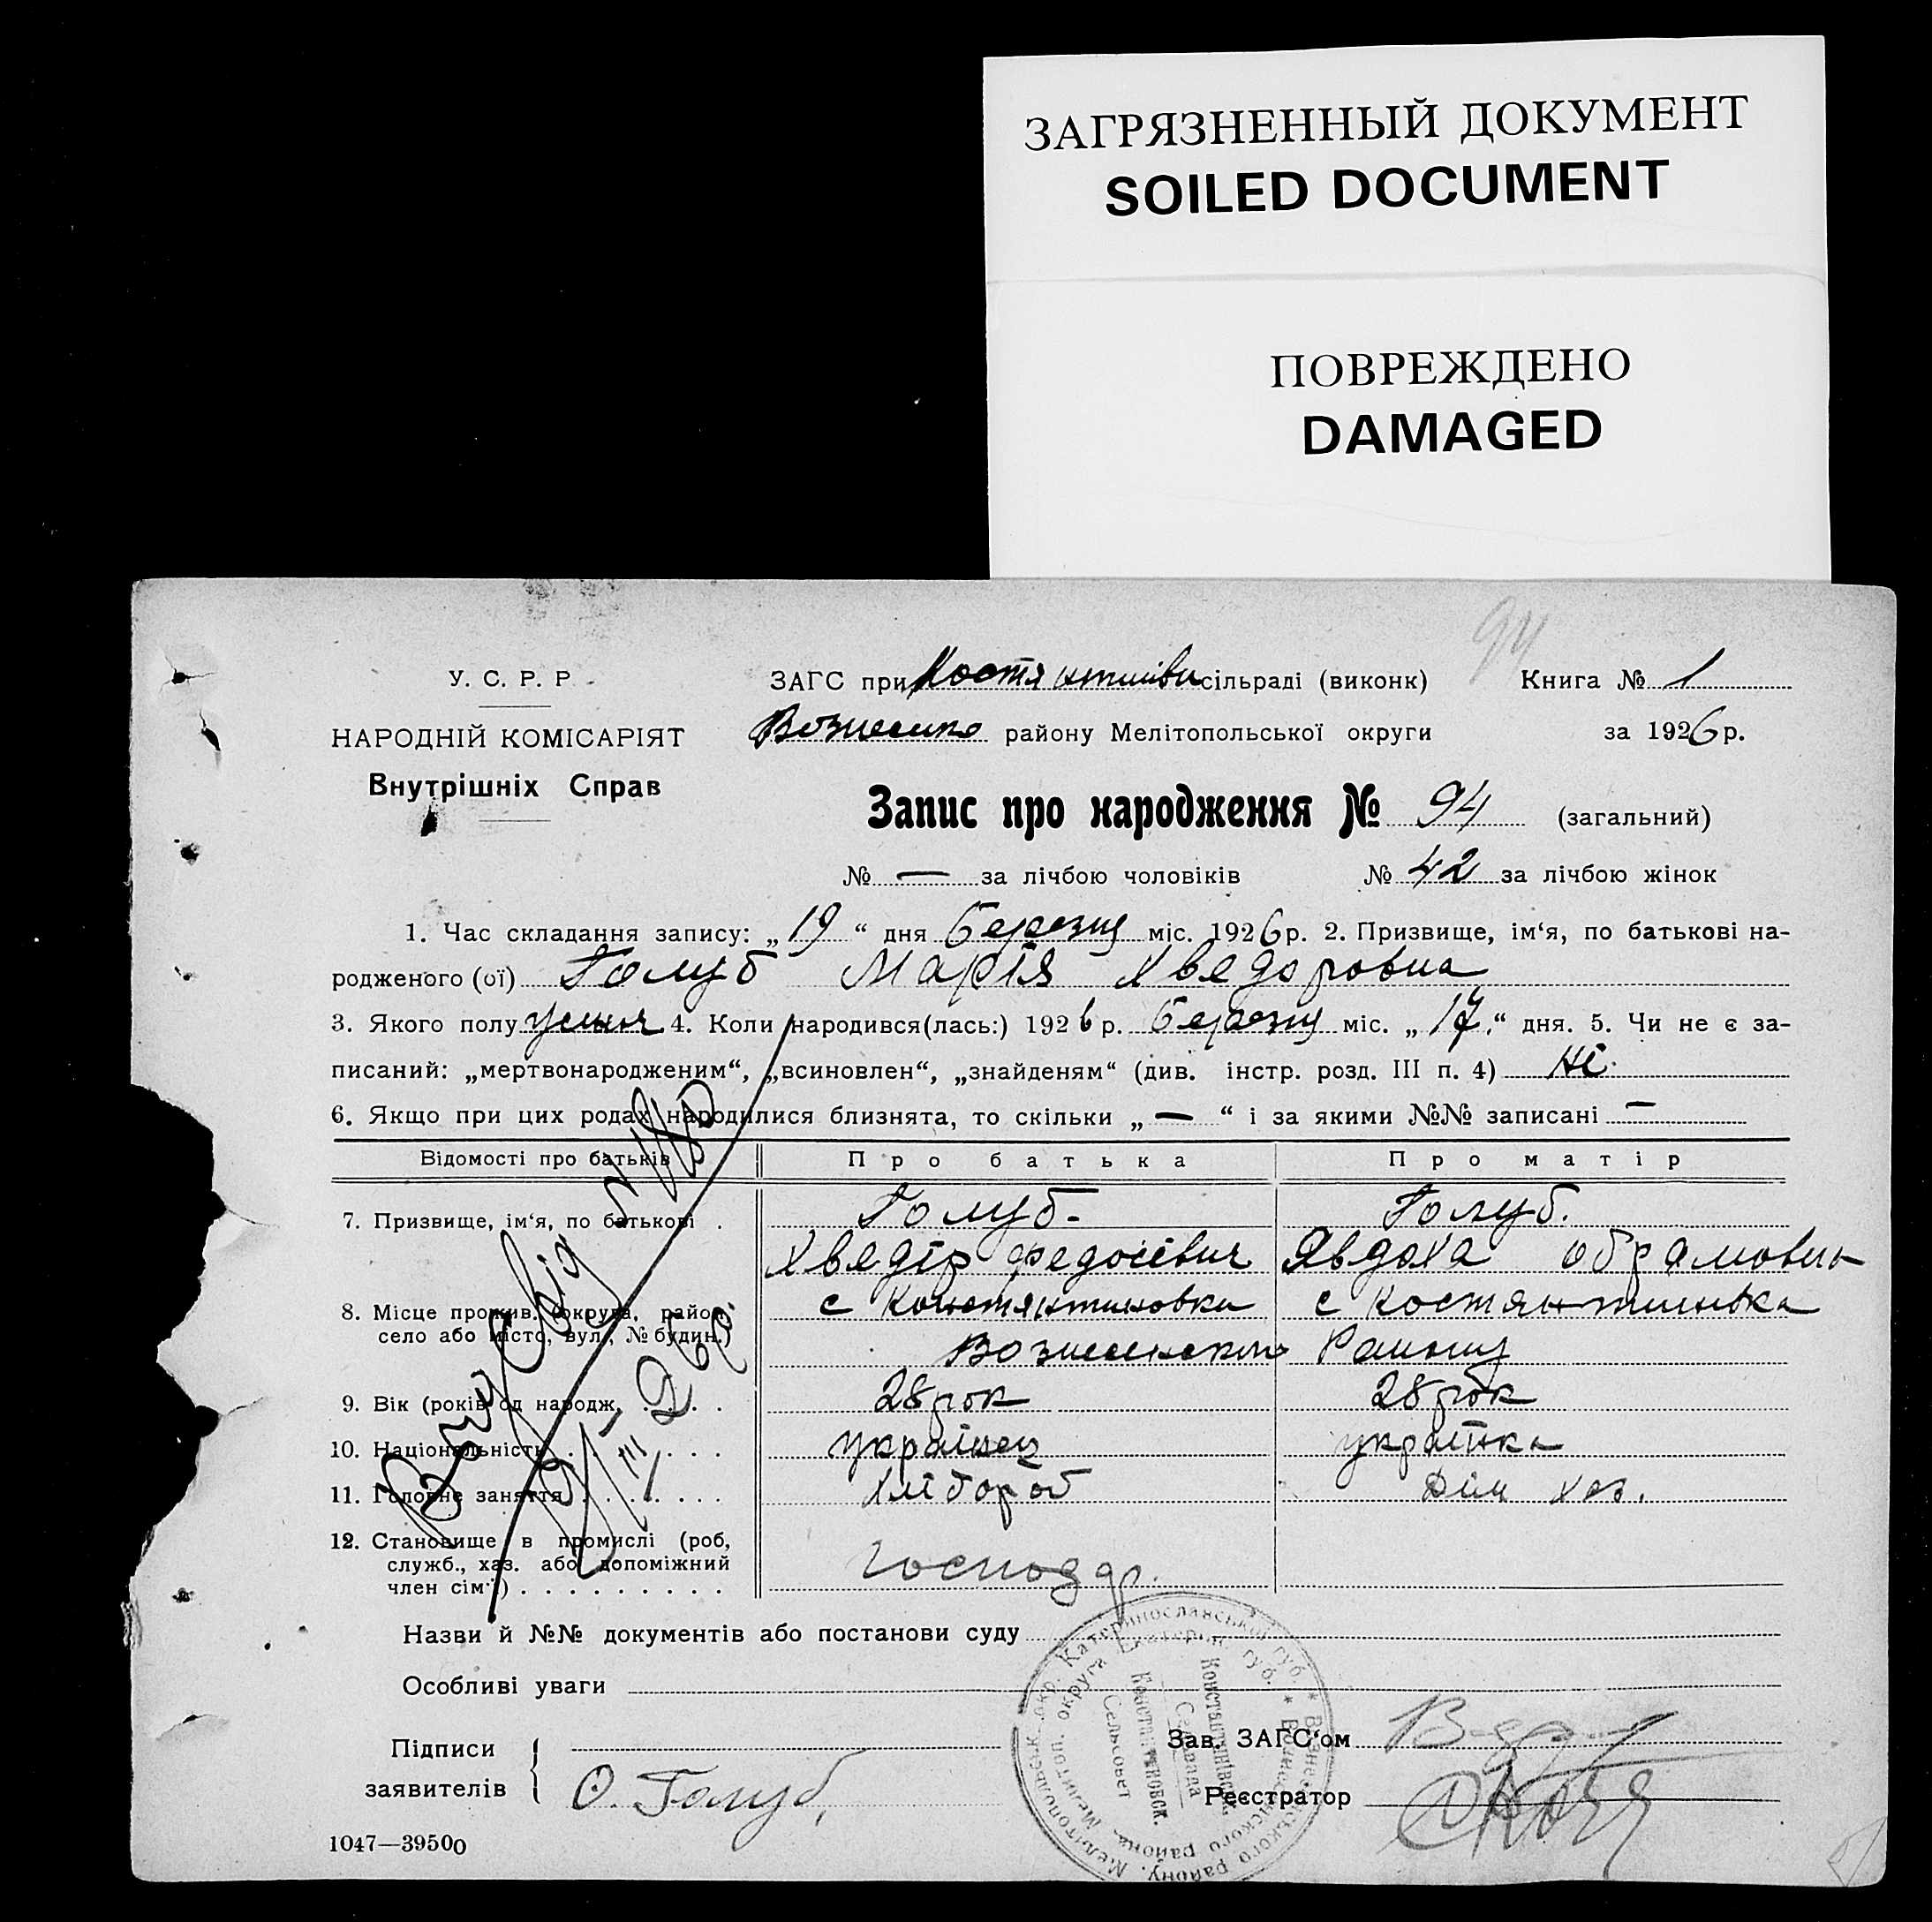 ЗАГРЯЗНЕННЫЙ ДОКУМЕНТ
SOILED DOCUMENT
ПОВРЕЖДЕНО
DAMAGED
94
У. С. Р. Р.
НАРОДНІЙ КОМІСАРІЯТ
Внутрішніх Справ
ЗАГС при Костянтинівн сільраді (виконк) Книга № 1
Вознесенко району Мелітопольської округи за 1926 р.
Запис про народження № 94 (загальний)
№ — за лічбою чоловіків № 42 за лічбою жінок
1. Час складання запису: „19“ дня березня міс. 1926 р. 2. Призвище, ім‘я, по батькові на-
родженого (ої) Голуб Марія Хведоровна
3. Якого полу 4. Коли народився(лась:) 1926 р. березня міс. „17.“ дня. 5. Чи не є за-
писаний: „мертвонародженим“, „всиновлен“, „знайденям“ (див. інстр. розд. III п. 4) ні.
6. Якщо при цих родах народилися близнята, то скільки „—“ і за якими №№ записані —
Відомості про батьків Про батька Про матір
7. Призвище, ім‘я, по батькові . Голуб- Голуб.
Хведір Федосієвич Явдоха обрамовна
8. Місце прожив. (округа, район, с Констянтиновки с Костянтинівка
село або місто, вул., № будин.) Вознесенского Району
9. Вік (років од народж. . . . . 28 рок 28 рок
10. Національність . . . . . українец українка
11. Головне заняття . . . . . . . Хлібороб Дом хоз.
12. Становище в промислі (роб,
служб., хаз. або допоміжний господар.
член сім‘ї) . . . . . . . . . .
III 26 р.
Назви й №№ документів або постанови суду
Особливі уваги
Підписи
заявителів { О. Голуб,
Зав. ЗАГС‘ом
Реєстратор
Мелітопольськ. окр. Катеринославської губ. * Вознесенського району.
Мелитоп. округа Екатерин. губ. * Вознесенского района
Костянтинівськ.
Сельрада
Константиновск.
Сельсовет
1047—39500